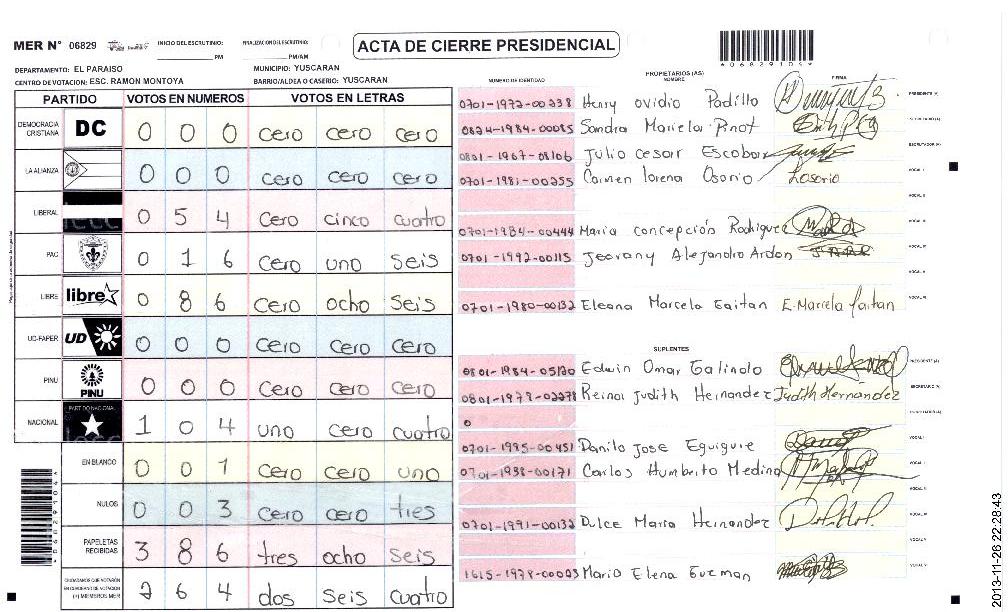 MER N° 06829
INICIO DEL ESCRUTINIO: PM
FINALIZACION DEL ESCRUTINIO: PM/AM
ACTA DE CIERRE PRESIDENCIAL
DEPARTAMENTO: EL PARAISO
MUNICIPIO: YUSCARAN
CENTRO DE VOTACION: ESC. RAMON MONTOYA
BARRIO/ALDEA O CASERIO: YUSCARAN
PARTIDO VOTOS EN NUMEROS VOTOS EN LETRAS
DEMOCRACIA CRISTIANA DC 0 0 0 cero cero cero
LA ALIANZA 0 0 0 cero cero cero
LIBERAL 0 5 4 cero cinco cuatro
PAC 0 1 6 cero uno seis
LIBRE libre 0 8 6 cero ocho seis
UD-FAPER UD 0 0 0 cero cero cero
PINU PINU 0 0 0 cero cero cero
NACIONAL PARTIDO NACIONAL 1 0 4 uno cero cuatro
EN BLANCO 0 0 1 cero cero uno
NULOS 0 0 3 cero cero tres
PAPELETAS RECIBIDAS 3 8 6 tres ocho seis
CIUDADANOS QUE VOTARON EN CUADERNO DE VOTACION (+) MIEMBROS MER 2 6 4 dos seis cuatro
NUMERO DE IDENTIDAD PROPIETARIOS (AS) NOMBRE FIRMA
0701-1972-00238 Henry Ovidio Padillo PRESIDENTE (A)
0824-1984-00085 Sandra Mariela Pinot SECRETARIO (A)
0801-1967-08106 Julio Cesar Escobar ESCRUTADOR (A)
0701-1981-00255 Carmen lorena Osorio Losorio VOCAL I
VOCAL II
0701-1984-00444 Maria concepción Rodriguez VOCAL III
0701-1992-00115 Jeovany Alejandro Ardon VOCAL IV
VOCAL V
0701-1980-00132 Eleana Marcela Gaitan E. Marcela Gaitan VOCAL VI
SUPLENTES
0801-1984-05120 Edwin Omar Galindo PRESIDENTE (A)
0801-1978-02278 Reina Judith Hernandez Judith Hernandez SECRETARIO (A)
0 ESCRUTADOR (A)
0701-1995-00451 Danilo Jose Eguigure VOCAL I
0701-1938-00171 Carlos Humberto Medina
0701-1991-00132 Dulce Maria Hernandez
1615-1978-00003 Maria Elena Guzman
2013-11-26 22:28:43